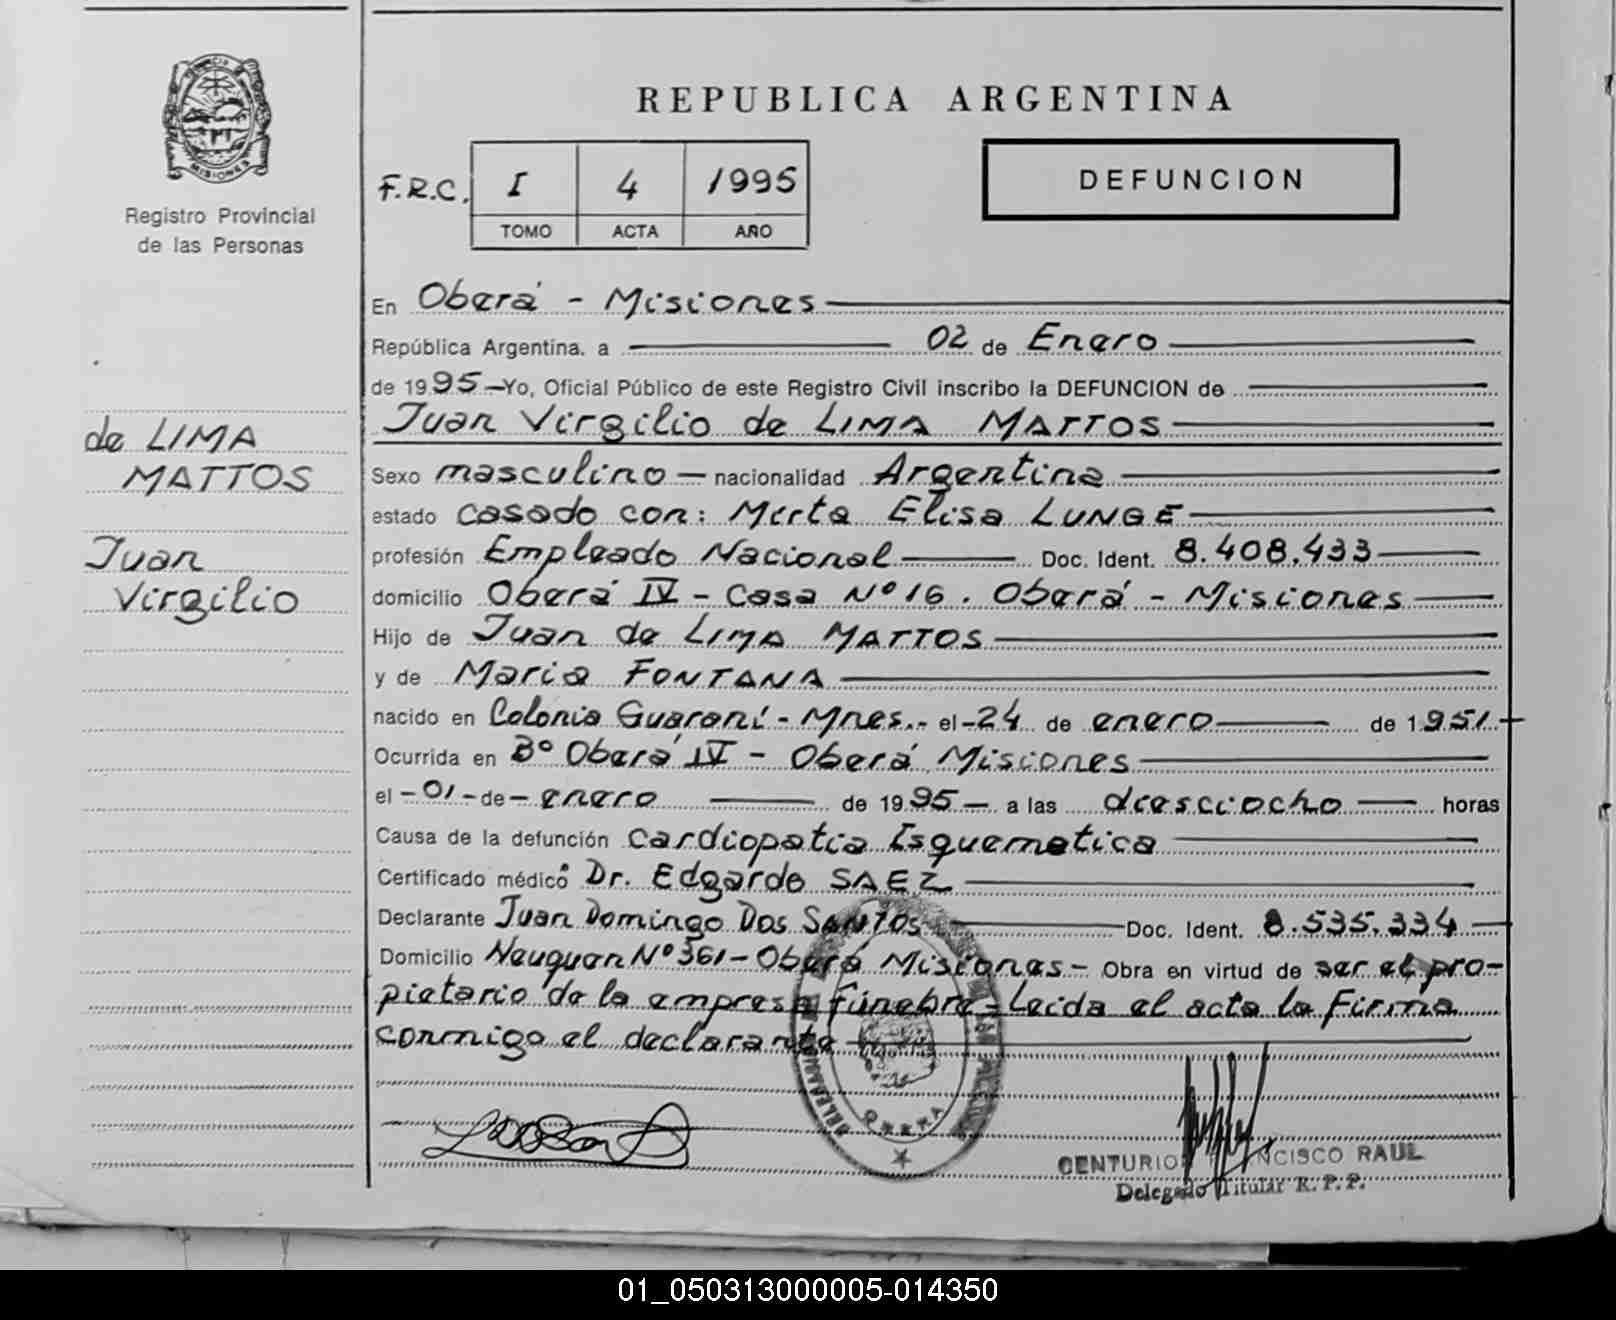 REPUBLICA ARGENTINA
MISIONES
Registro Provincial
de las Personas
F.R.C. I 4 1995
TOMO ACTA AÑO
DEFUNCION
En Oberá - Misiones
República Argentina. a 02 de Enero
de 1995 Yo, Oficial Público de este Registro Civil inscribo la DEFUNCION de
Juan Virgilio de LIMA MATTOS
de LIMA
MATTOS
Juan
Virgilio
Sexo masculino nacionalidad Argentina
estado casado con: Mirta Elisa LUNGE
profesión Empleado Nacional Doc. Ident. 8.408.433
domicilio Oberá IV - Casa Nº 16. Oberá - Misiones
Hijo de Juan de LIMA MATTOS
y de Maria FONTANA
nacido en Colonia Guaraní - Mnes.- el - 24 de enero de 1951
Ocurrida en Bº Oberá IV - Oberá Misiones
el - 01 - de - enero de 1995 a las diesciocho horas
Causa de la defunción cardiopatia Isquematica
Certificado médico Dr. Edgardo SAEZ
Declarante Juan Domingo Dos SANTOS Doc. Ident. 8.535.334
Domicilio Neuquen Nº 361 - Oberá Misiones - Obra en virtud de ser el pro-
pietario de la empresa fúnebre - Leida el acta la firma
conmigo el declarante
OBERA
CENTURION FRANCISCO RAUL
Delegado Titular R. P. P.
01_050313000005-014350